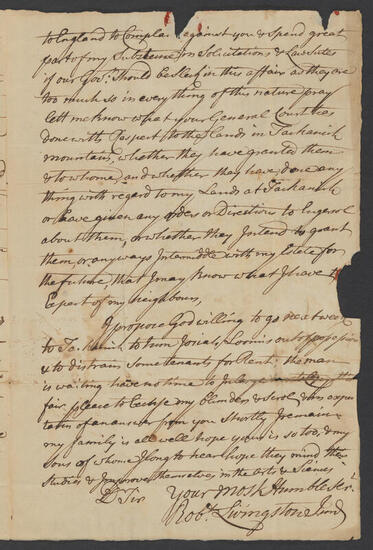 to England to Complain against you & spend great
part of my Substance in Solicitations & Law Sutes
if our Gov:t should be slack in this affair as they are
too much so in everything of this nature pray
lett me know what your General Court has
done with respect to the Lands in Tachanick
mountains, whether they have granted them
& to whome, and whether they have done any
thing with regard to my Lands at Tachanick
or have given any order or Directions to Ingersol
about them, or whether they Intend to grant
them, or any ways Intermiddle with my Estate for
the future, that I may know what I have to
Expect of my neighbours,
I propose God willing to go next week
to Tachanick to turn Josiah Loomis out of possession
& to distrain some tenants for Rent. the man
is waiting have no time to Inlarge
fair. please to Excuse my blunders & scrol & in expec
tation of an answer from you Shortly I remain
my family is all well hope yours is so too, &
sons of whome I long to hear hope they mind their
Studies & Improve themselves in the arts & Siences
D:r Sir Your Most Humble Ser:t
Rob:t Livingston Jun:r